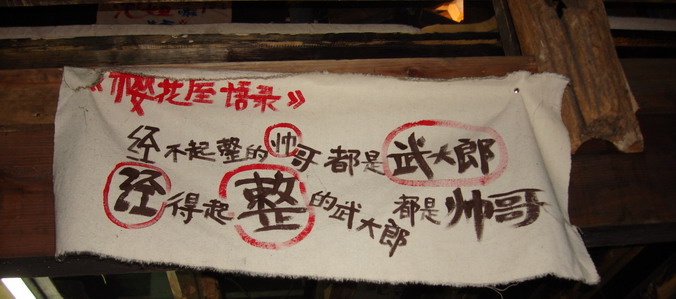 《樱花屋语录》
经不起整的帅哥都是武大郎
经得起整的武大郎都是帅哥